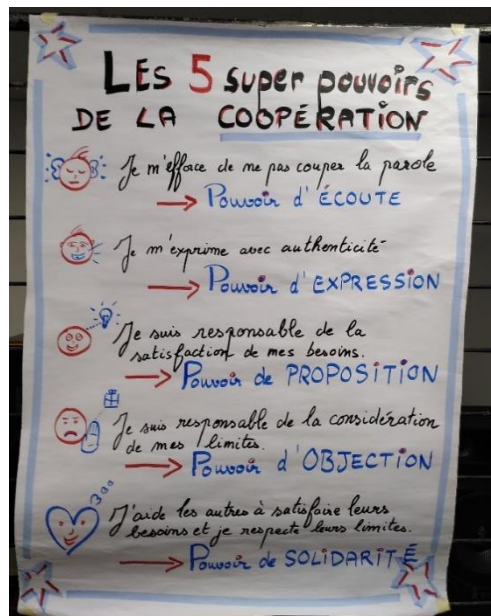 LES 5 super pouvoirs
DE LA COOPÉRATION
Je m'efforce de ne pas couper la parole
→ Pouvoir d'ÉCOUTE
Je m'exprime avec authenticité
→ Pouvoir d'EXPRESSION
Je suis responsable de la
satisfaction de mes besoins.
→ Pouvoir de PROPOSITION
Je suis responsable de la considération
de mes limites.
→ Pouvoir d'OBJECTION
J'aide les autres à satisfaire leurs
besoins et je respecte leurs limites.
→ Pouvoir de SOLIDARITÉ